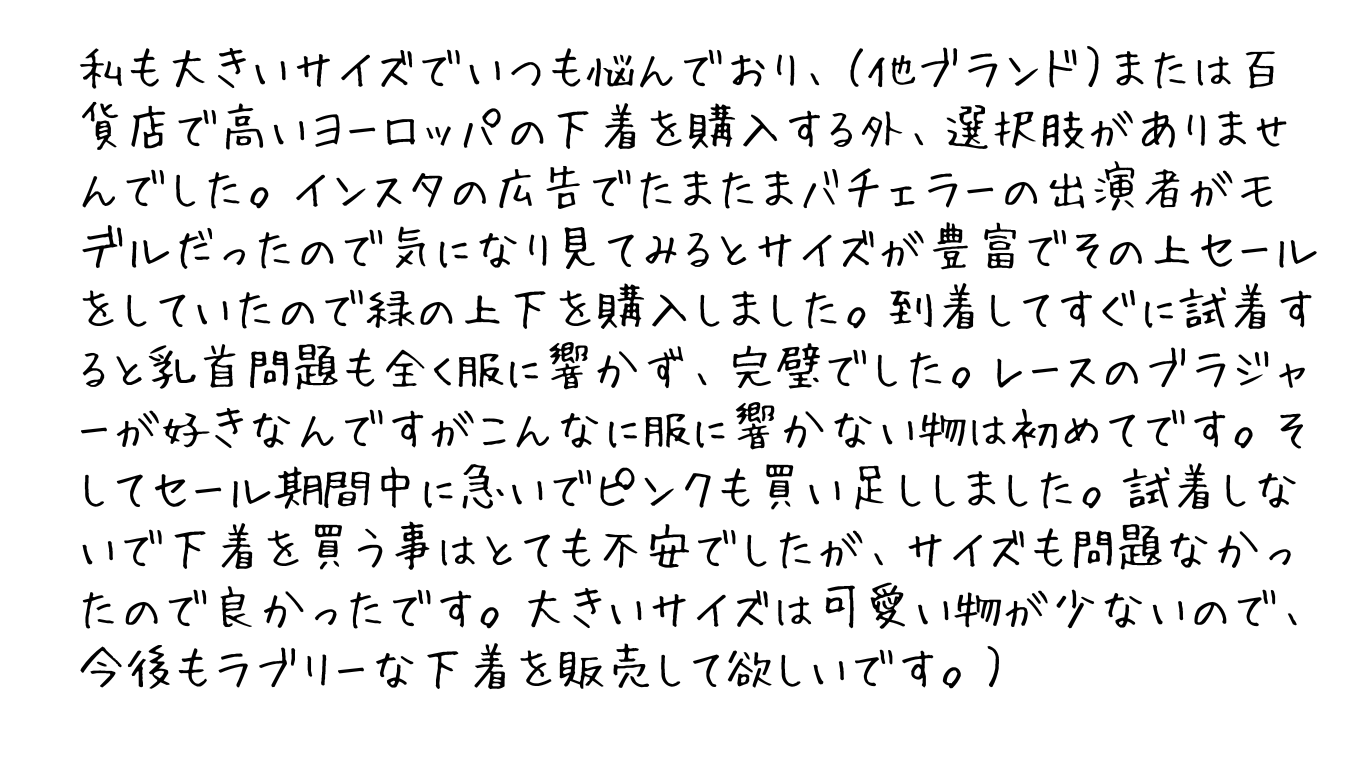 私も大きいサイズでいつも悩んでおり、(他ブランド)または百
貨店で高いヨーロッパの下着を購入する外、選択肢がありませ
んでした。インスタの広告でたまたまバチェラーの出演者がモ
デルだったので気になり見てみるとサイズが豊富でその上セール
をしていたので緑の上下を購入しました。到着してすぐに試着す
ると乳首問題も全く服に響かず、完璧でした。レースのブラジャ
ーが好きなんですがこんなに服に響かない物は初めてです。そ
してセール期間中に急いでピンクも買い足ししました。試着しな
いで下着を買う事はとても不安でしたが、サイズも問題なかっ
たので良かったです。大きいサイズは可愛い物が少ないので、
今後もラブリーな下着を販売して欲しいです。)